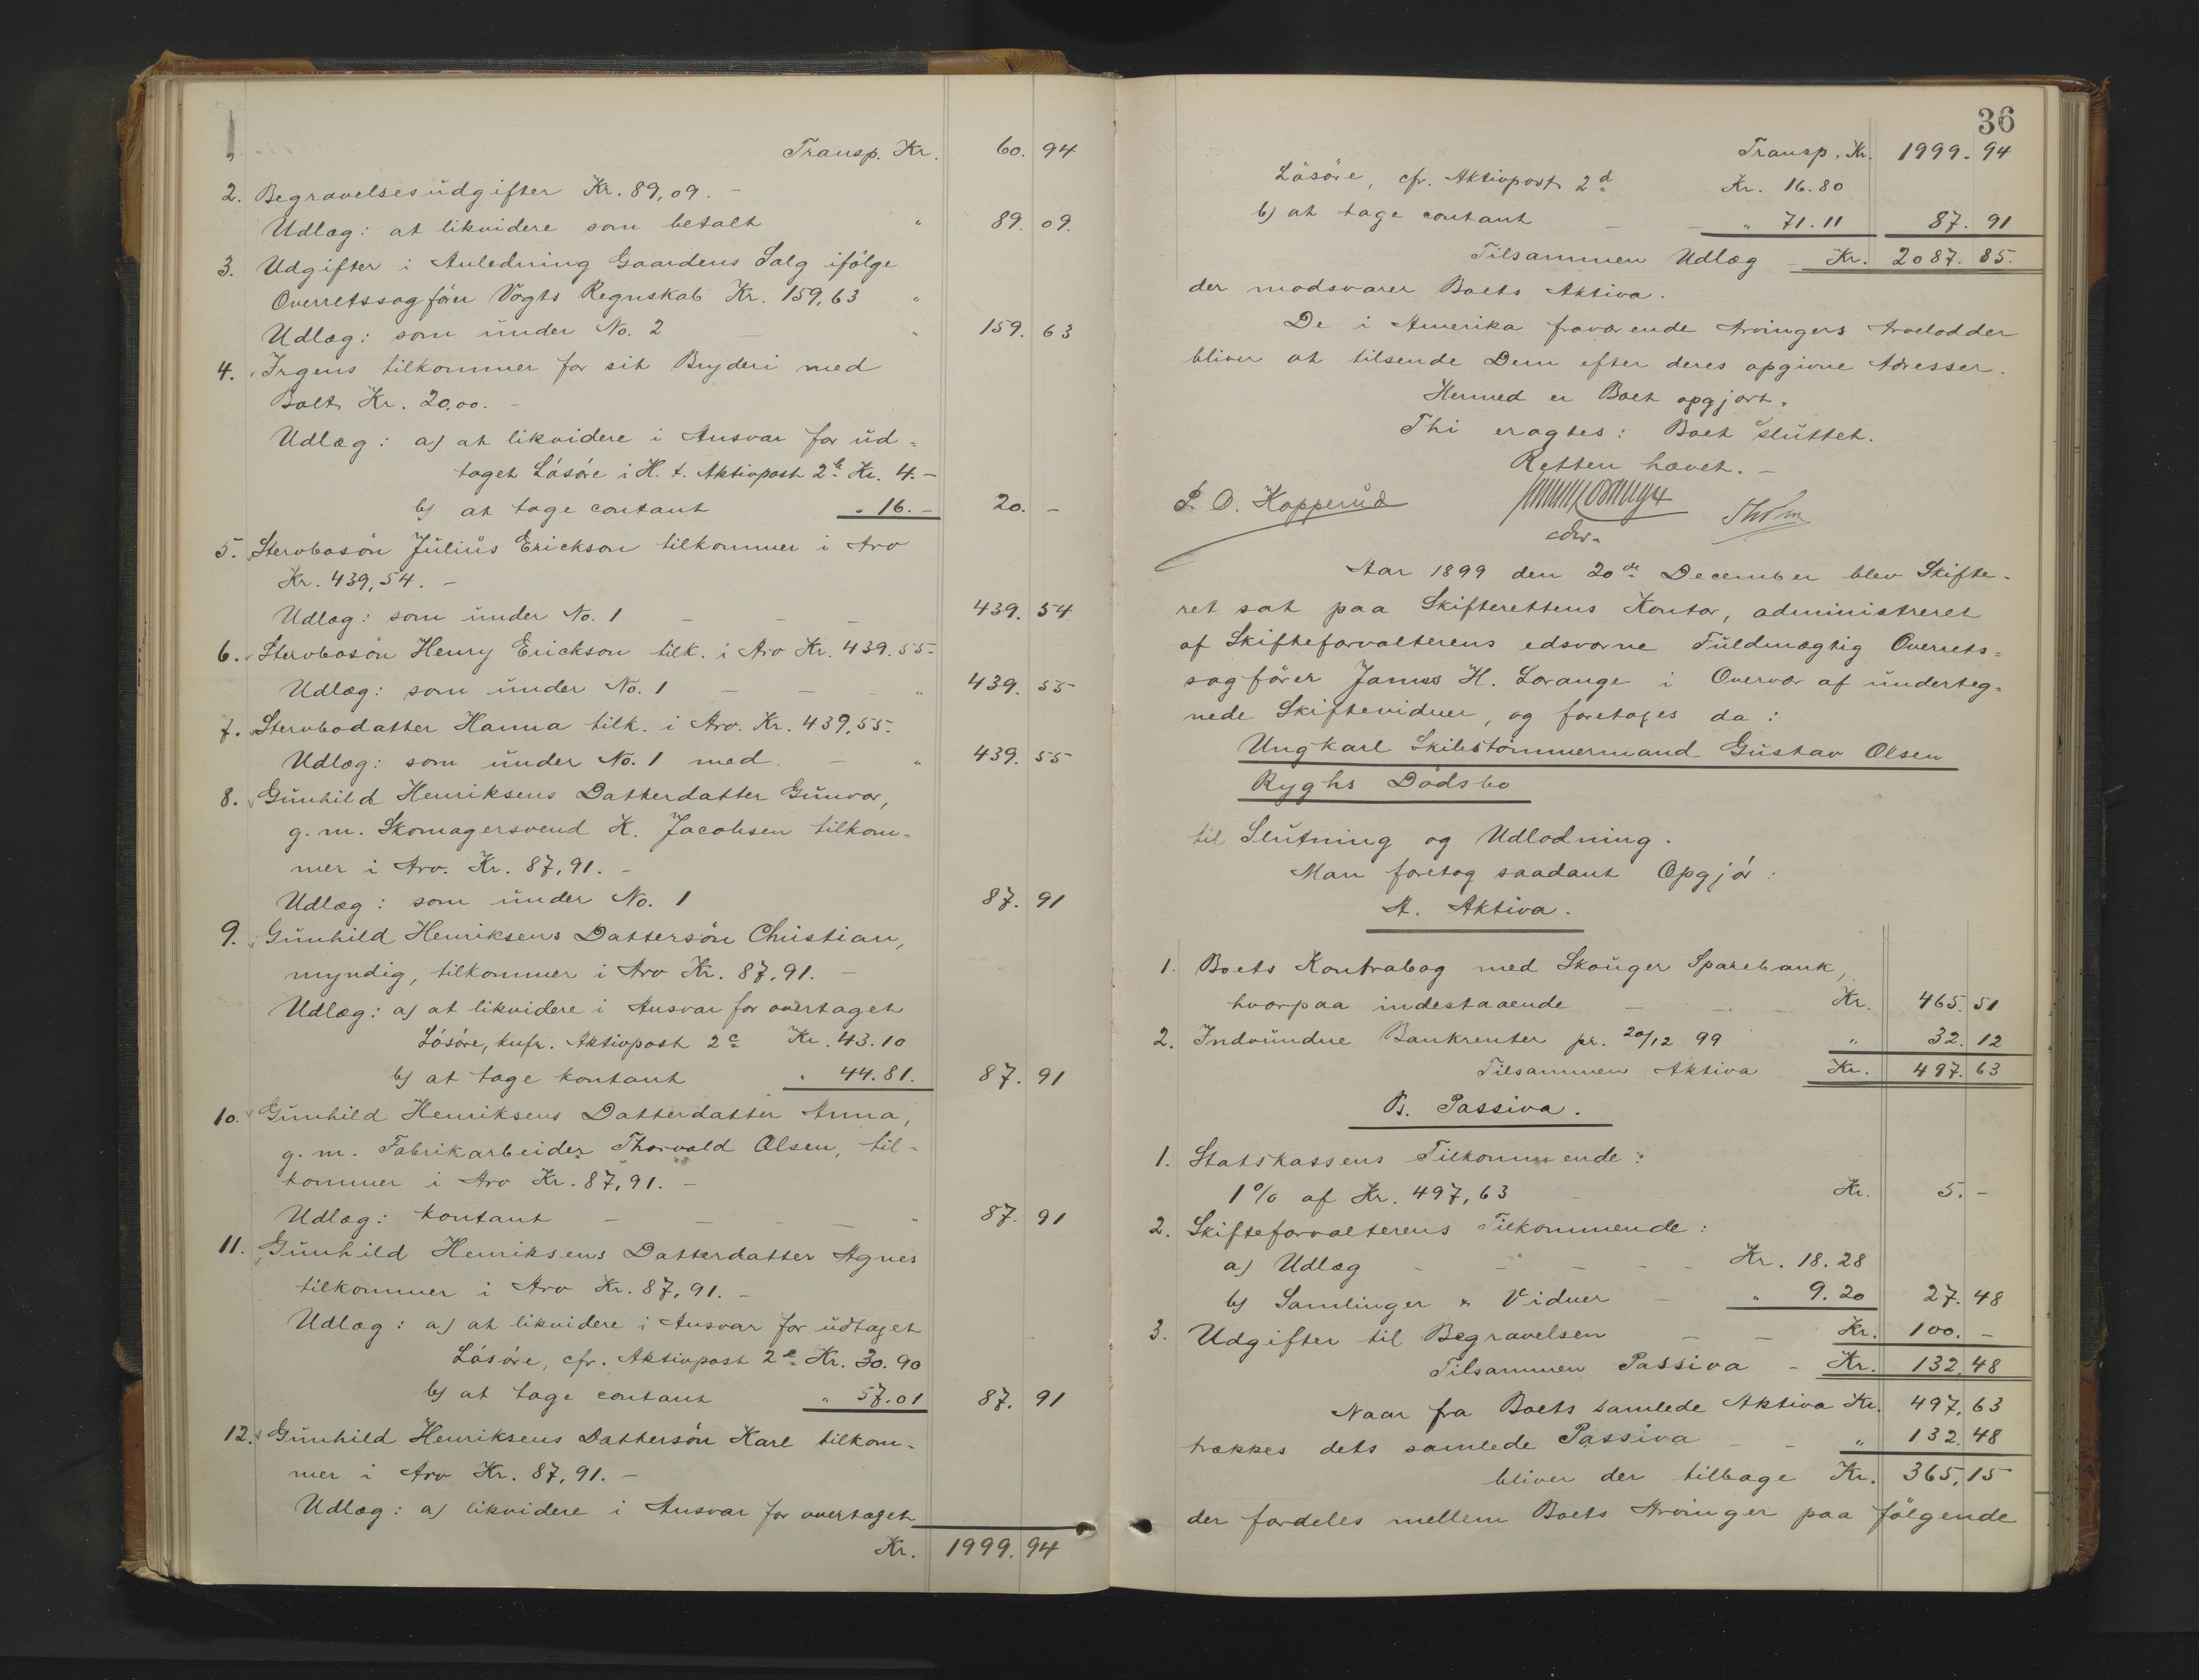 Transp. Kr. 60. 94
2. Begravelsesudgifter Kr. 89,09. –
Udlæg: at likvidere som betalt " 89. 09.
3. Udgifter i Anledning Gaardens Salg ifölge
Overretssagförer Vogts Regnskab Kr. 159,63 "
Udlæg: som under No. 2 – " 159. 63
4. Irgens tilkommer for sit Bryderi med
Boet Kr. 20,00. –
Udlæg: a) at likvidere i Ansvar for ud=
taget Lösöre i H. t. Aktivpost 2 b Kr. 4. –
b) at tage contant " 16. – 20. –
5. Stervbosön Julius Erickson tilkommer i Arv
Kr. 439,54. –
Udlæg: som under No. 1 – – – 439. 54
6. Stervbosön Henry Erickson tilk. i Arv Kr. 439.55–
Udlæg: som under No. 1 – – – " 439. 55
7. Stervbodatter Hanna tilk. i Arv. Kr. 439,55.
Udlæg: som under No. 1 med – " 439. 55
8. Gunhild Henriksens Datterdatter Gunvor,
g. m. Skomagersvend K. Jacobsen tilkom=
mer i Arv. Kr. 87,91. –
Udlæg: som under No. 1 87. 91
9. Gunhild Henriksens Dattersön Christian,
myndig, tilkommer i Arv Kr. 87,91. –
Udlæg: a) at likvidere i Ansvar for overtaget
Lösöre, knfr. Aktivpost 2 c Kr. 43.10
b) at tage kontant " 44.81. 87. 91
10. Gunhild Henriksens Datterdatter Anna,
g. m. Fabrikarbeider Thorvald Olsen, til-
kommer i Arv Kr. 87,91. –
Udlæg: kontant – – – – " 87. 91
11. Gunhild Henriksens Datterdatter Agnes
tilkommer i Arv Kr. 87,91. –
Udlæg: a) at likvidere i Ansvar for udtaget
Lösöre, cfr. Aktivpost 2 e Kr. 30.90
b) at tage contant " 57.01 87. 91
12. Gunhild Henriksens Dattersön Karl tilkom-
mer i Arv Kr. 87,91. –
Udlæg: a) likvidere i Ansvar for overtaget
Kr. 1999. 94
36
Transp. Kr. 1999. 94
Lösöre, cfr. Aktivpost 2 d Kr. 16.80
b) at tage contant – – " 71.11 87. 91
Tilsammen Udlæg – Kr. 2087. 85.
der modsvarer Boets Aktiva.
De i Amerika fraværende Arvingers Arvelodder
bliver at tilsende Dem efter deres opgivne Adresser.
Hermed er Boet opgjort.
Thi eragtes: Boet sluttet.
Retten hævet. –
P. O. Kopperud
edsv.
Aar 1899 den 20de December blev Skifte-
ret sat paa Skifterettens Kontor, administreret
af Skifteforvalterens edsvorne Fuldmægtig Overrets=
sagförer James H. Lorange i Overvær af underteg=
nede Skiftevidner, og foretoges da:
Ungkarl Skibstömmermand Gustav Olsen
Ryghs Dödsbo
til Slutning og Udlodning.
Man foretog saadant Opgjör:
A. Aktiva.
1. Boets Kontrabog med Skouger Sparebank,
hvorpaa indestaaende – – – Kr. 465. 51
2. Indvundne Bankrenter pr. 20/12 99 " 32. 12
Tilsammen Aktiva Kr. 497. 63
B. Passiva.
1. Statskassens Tilkommende:
1% af Kr. 497,63 – Kr. 5. –
2. Skifteforvalterens Tilkommende:
a) Udlæg – – – – – Kr. 18.28
b) Samlinger & Vidner – " 9.20 27. 48
3. Udgifter til Begravelsen – – Kr. 100. –
Tilsammen Passiva – Kr. 132. 48
Naar fra Boets samlede Aktiva Kr. 497. 63
trækkes dets samlede Passiva – – " 132. 48
bliver der tilbage Kr. 365,15
der fordeles mellem Boets Arvinger paa fölgende